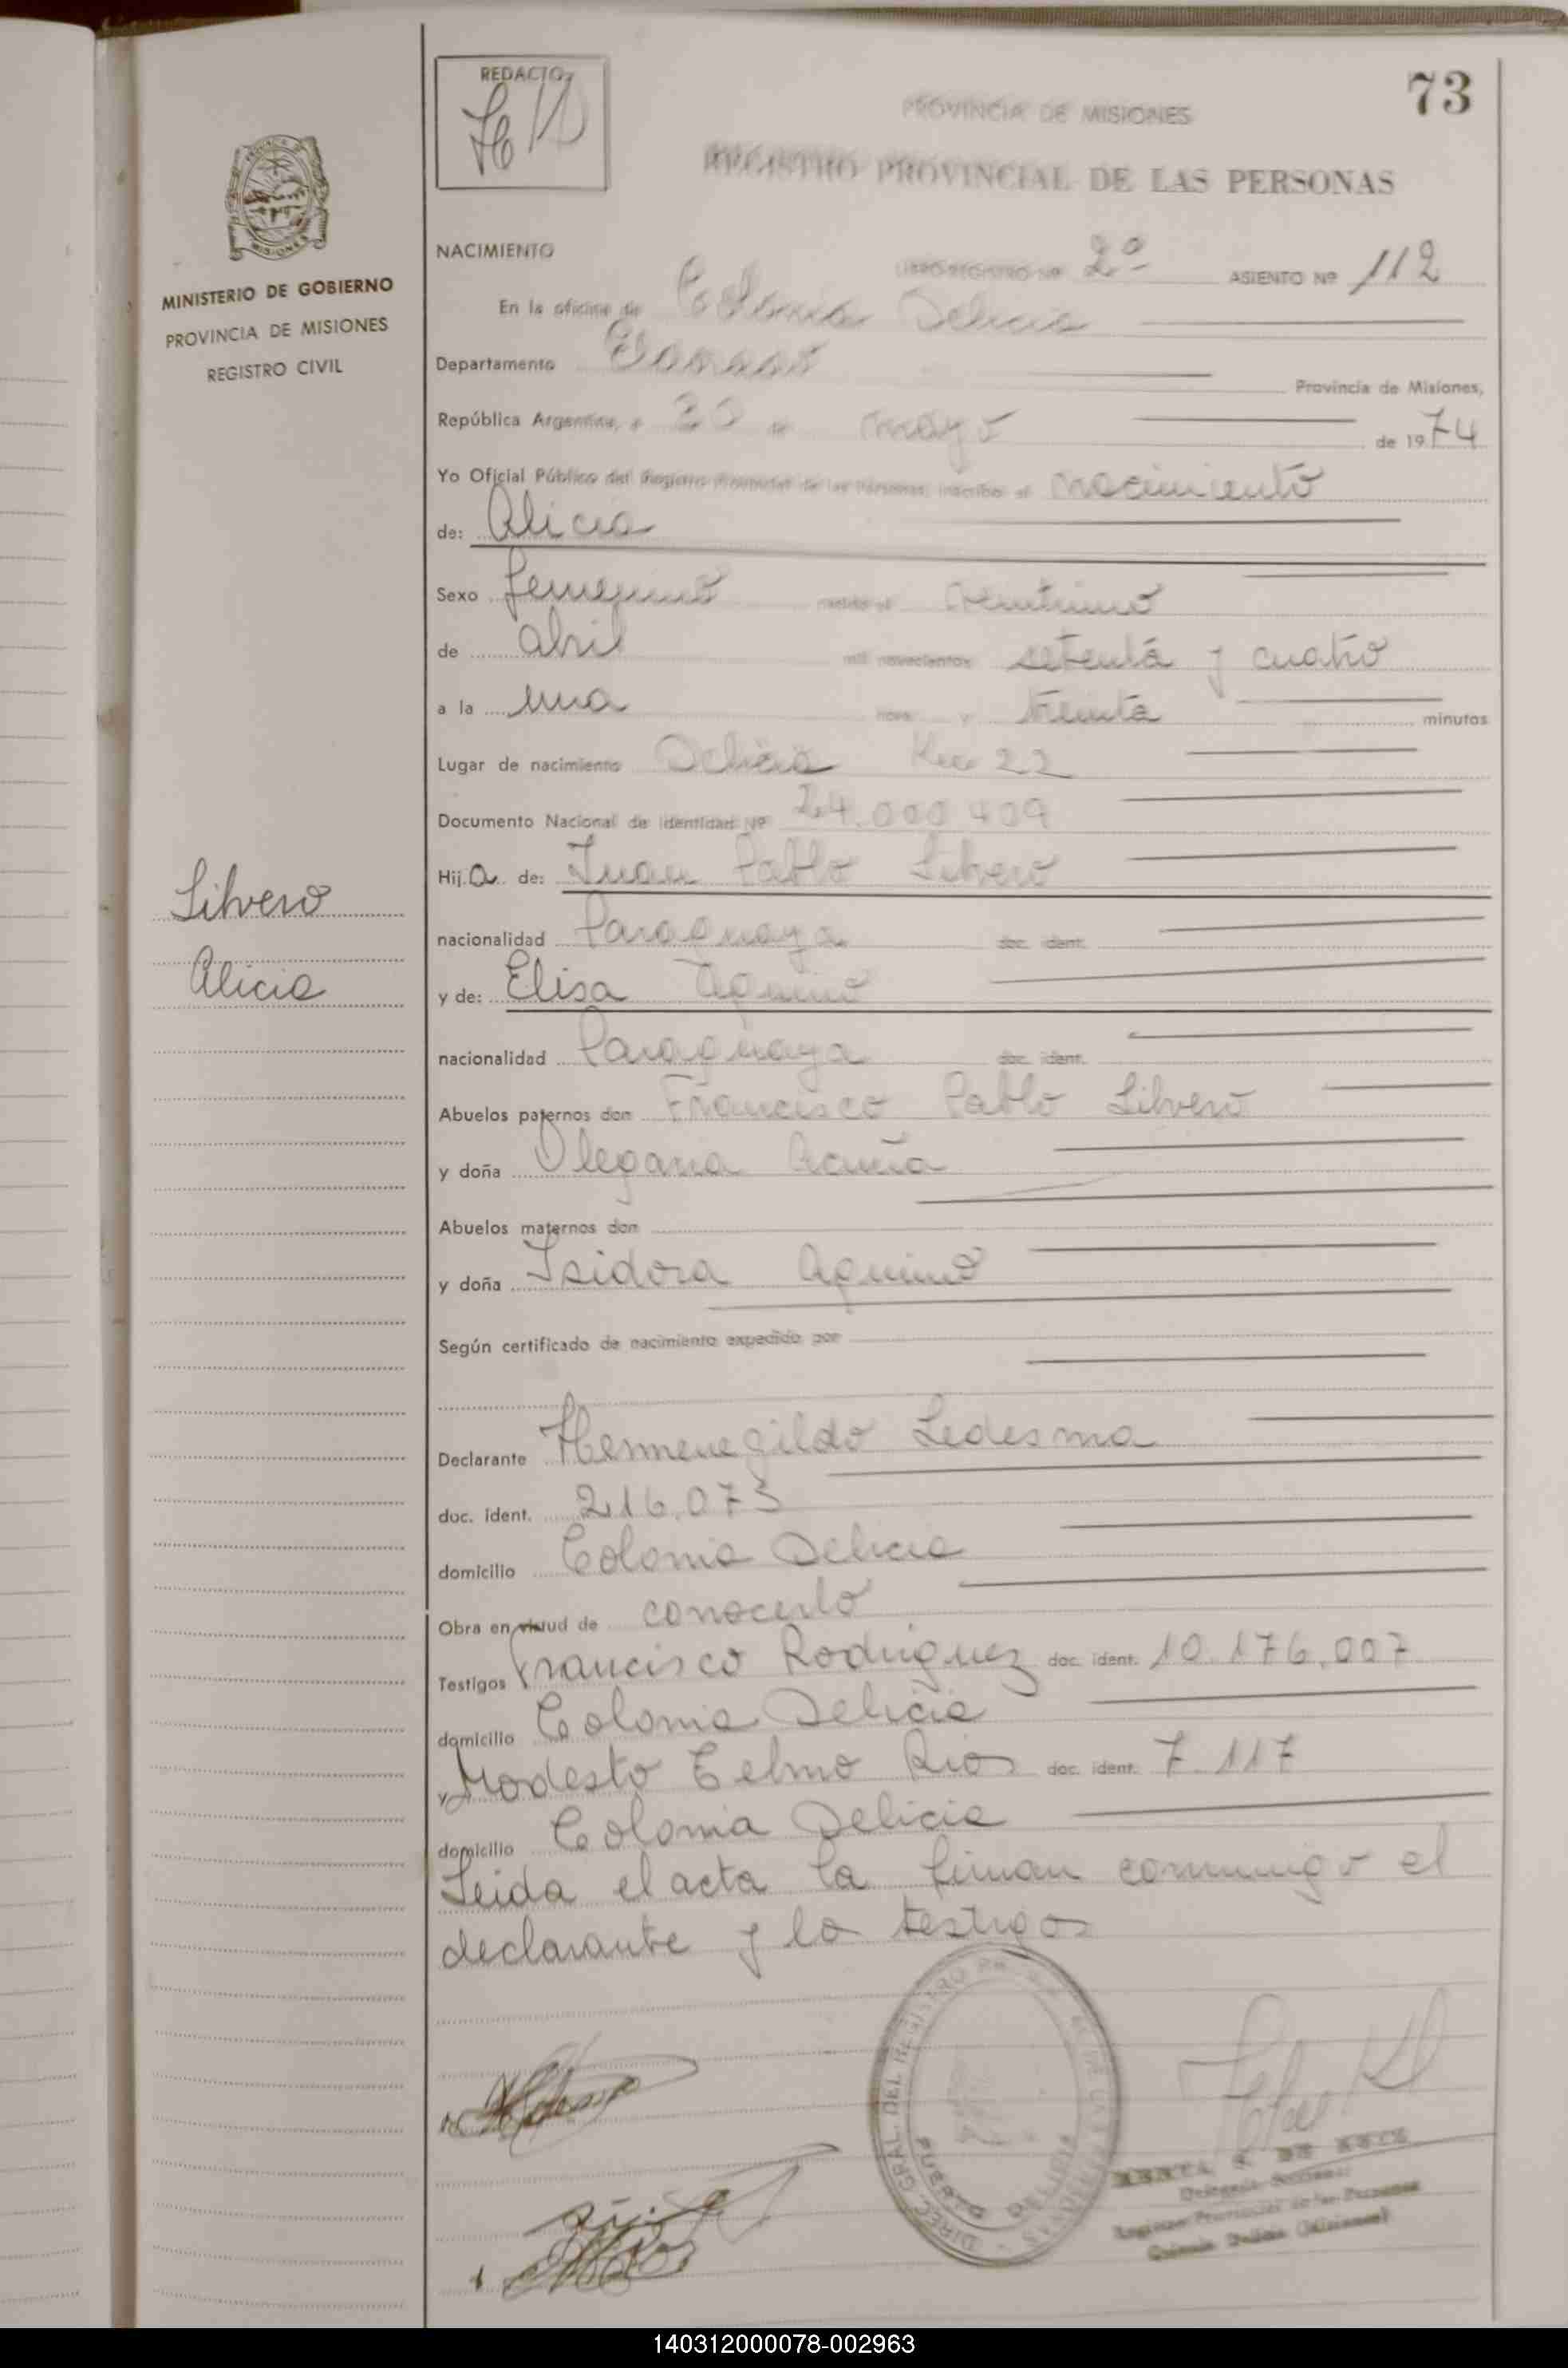 REDACTO
73
PROVINCIA DE MISIONES
REGISTRO PROVINCIAL DE LAS PERSONAS
MISIONES
MINISTERIO DE GOBIERNO
PROVINCIA DE MISIONES
REGISTRO CIVIL
NACIMIENTO
LIBRO REGISTRO Nº 2º ASIENTO Nº 112
En la oficina de Colonia Delicia
Departamento
Provincia de Misiones,
República Argentina, a 20 de mayo de 1974
Yo Oficial Público del Registro Provincial de las Personas, inscribo el nacimiento
de: Alicia
Sexo femenino nacido el veintiuno
de abril mil novecientos setenta y cuatro
a la una hora y treinta minutos
Lugar de nacimiento Delicia Km 22
Documento Nacional de Identidad Nº 24.000 409
Hija de: Juan Pablo Silvero
nacionalidad Paraguaya doc. ident.
y de: Elisa Aquino
nacionalidad Paraguaya doc. ident.
Abuelos paternos don Francisco Pablo Silvero
y doña Olegaria Acuña
Abuelos maternos don
y doña Isidora Aquino
Según certificado de nacimiento expedido por
Declarante Hermenegildo Ledesma
doc. ident. 216.073
domicilio Colonia Delicia
Obra en virtud de conocerlo
Testigos Francisco Rodriguez doc. ident. 10.176.007
domicilio Colonia Delicia
y Modesto Telmo Rios doc. ident. 7.117
domicilio Colonia Delicia
Leida el acta la firman conmigo el
declarante y lo testigos
Silvero
Alicia
DIREC. GRAL. DEL REGISTRO
PUERTO DELICIA
Registro Provincial de las Personas
140312000078-002963